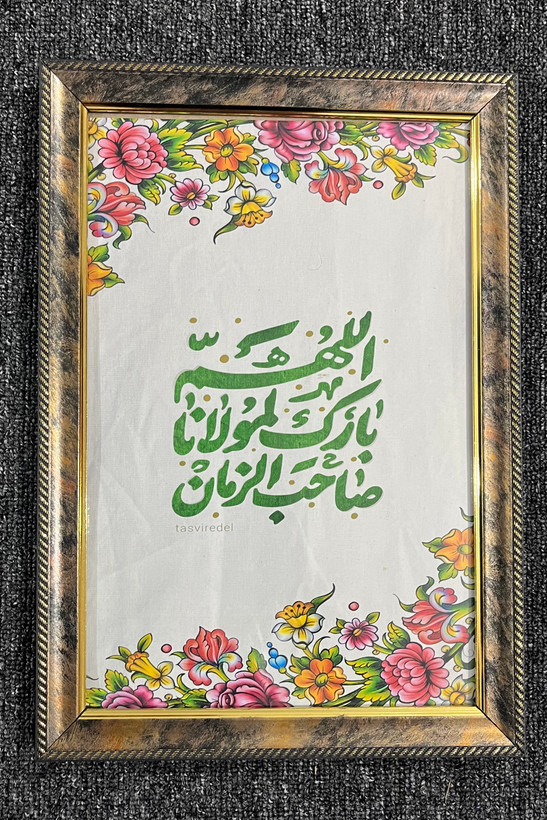 اللهم
بارک لمولانا
صاحب الزمان
tasviredel